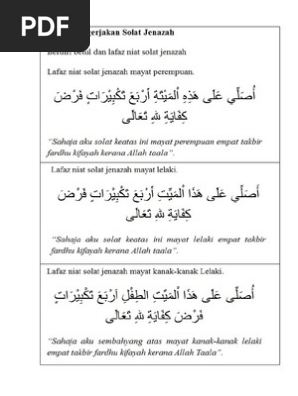 PDF
gerjakan Solat Jenazah
betul dan lafaz niat solat jenazah
Lafaz niat solat jenazah mayat perempuan.
أُصَلِّي عَلَى هَذِهِ الْمَيِّتَةِ أَرْبَعَ تَكْبِيْرَاتٍ فَرْضَ
كِفَايَةِ للهِ تَعَالَى
“Sahaja aku solat keatas ini mayat perempuan empat takbir
fardhu kifayah kerana Allah taala”.
Lafaz niat solat jenazah mayat lelaki.
أُصَلِّي عَلَى هَذَا الْمَيِّتِ أَرْبَعَ تَكْبِيْرَاتٍ فَرْضَ
كِفَايَةِ للهِ تَعَالَى
“Sahaja aku solat keatas ini mayat lelaki empat takbir
fardhu kifayah kerana Allah taala”.
Lafaz niat solat jenazah mayat kanak-kanak Lelaki.
أُصَلِّي عَلَى هَذَا الْمَيِّتِ الطِّفْلِ أَرْبَعَ تَكْبِيْرَاتٍ
فَرْضَ كِفَايَةِ للهِ تَعَالَى
“Sahaja aku sembahyang atas mayat kanak-kanak lelaki
empat takbir fardhu kifayah kerana Allah Taala”.